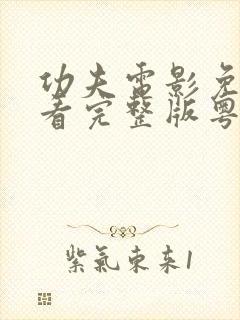 功夫电影免
看完整版粤
紫氣東来1